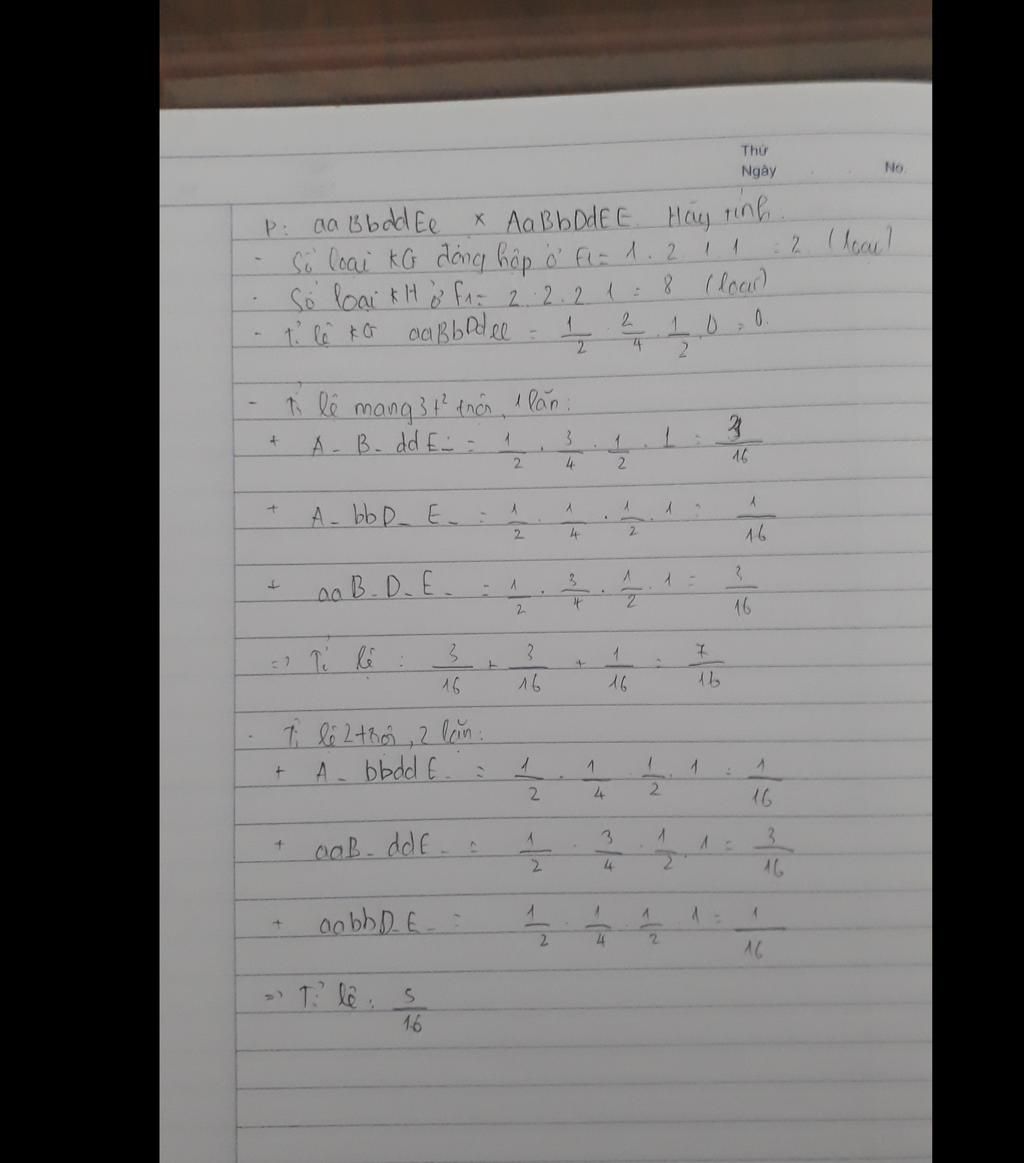 Thứ
Ngày No.
P: aaBbddEe x AaBbDdEE. Hãy tính.
- Số loại KG đồng hợp ở F1 = 1 . 2 . 1 . 1 = 2 (loại)
- Số loại KH ở F1 = 2 . 2 . 2 . 1 = 8 (loại)
- Tỉ lệ KG aaBbDdee = 1/2 . 2/4 . 1/2 . 0 = 0.
- Tỉ lệ mang 3t² trội, 1 lặn:
+ A_ B_ ddE_ = 1/2 . 3/4 . 1/2 . 1 = 3/16
+ A_ bbD_ E_ = 1/2 . 1/4 . 1/2 . 1 = 1/16
+ aaB_D_E_ = 1/2 . 3/4 . 1/2 . 1 = 3/16
=> Tỉ lệ : 3/16 + 3/16 + 1/16 = 7/16
- Tỉ lệ 2 trội, 2 lặn:
+ A_ bbddE_ = 1/2 . 1/4 . 1/2 . 1 = 1/16
+ aaB_ ddE_ = 1/2 . 3/4 . 1/2 . 1 = 3/16
+ aabbD_E_ = 1/2 . 1/4 . 1/2 . 1 = 1/16
=> Tỉ lệ : 5/16